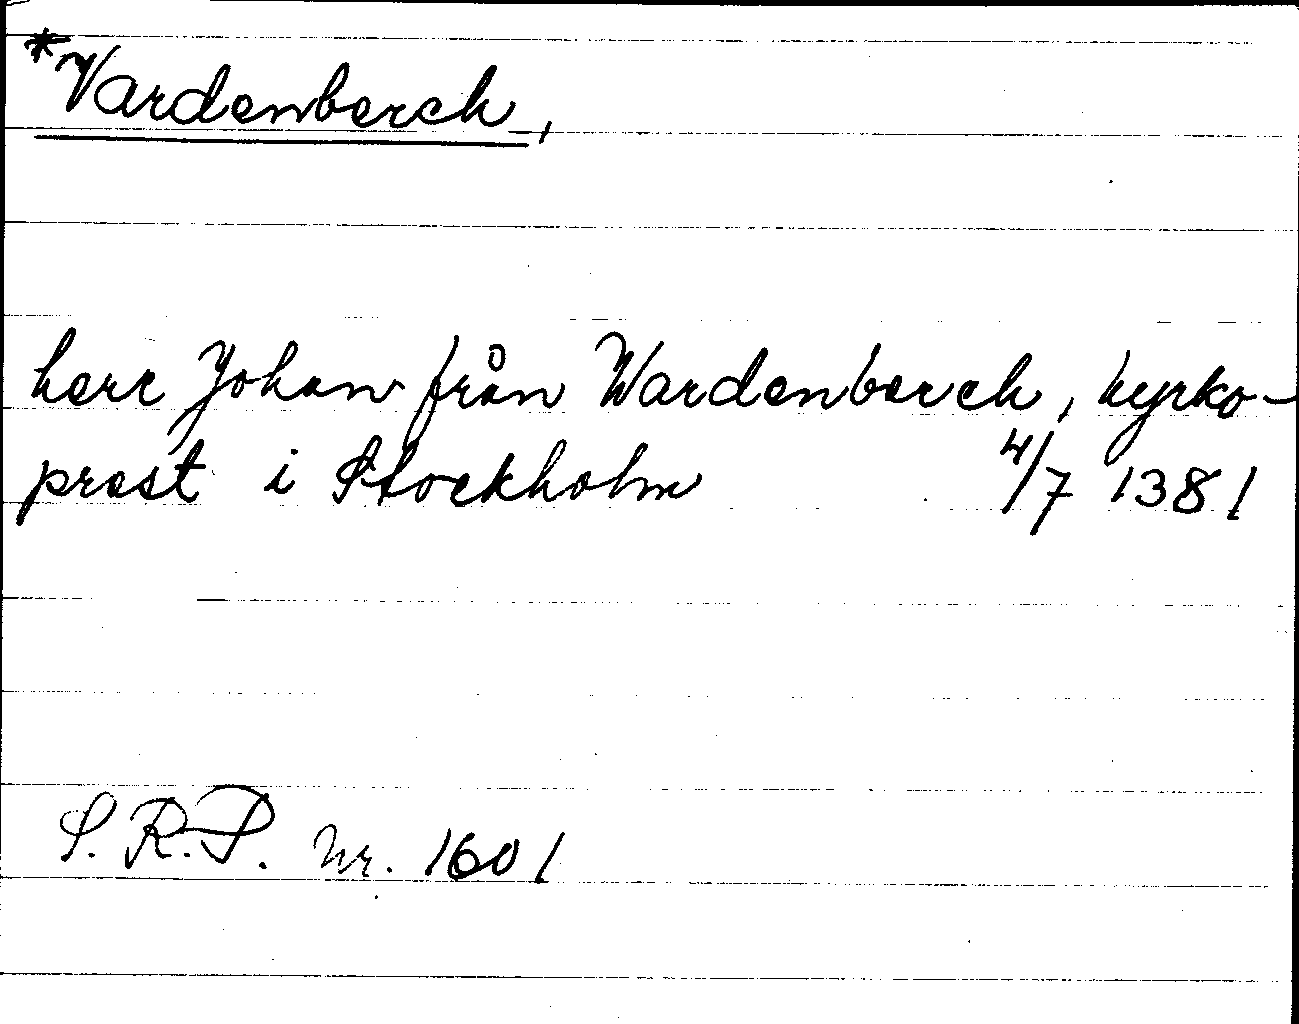 *Vardenberch,
herr Johan från Wardenberch, kyrko-
prest i Stockholm 4/7 1381
S.R.P. nr. 1601